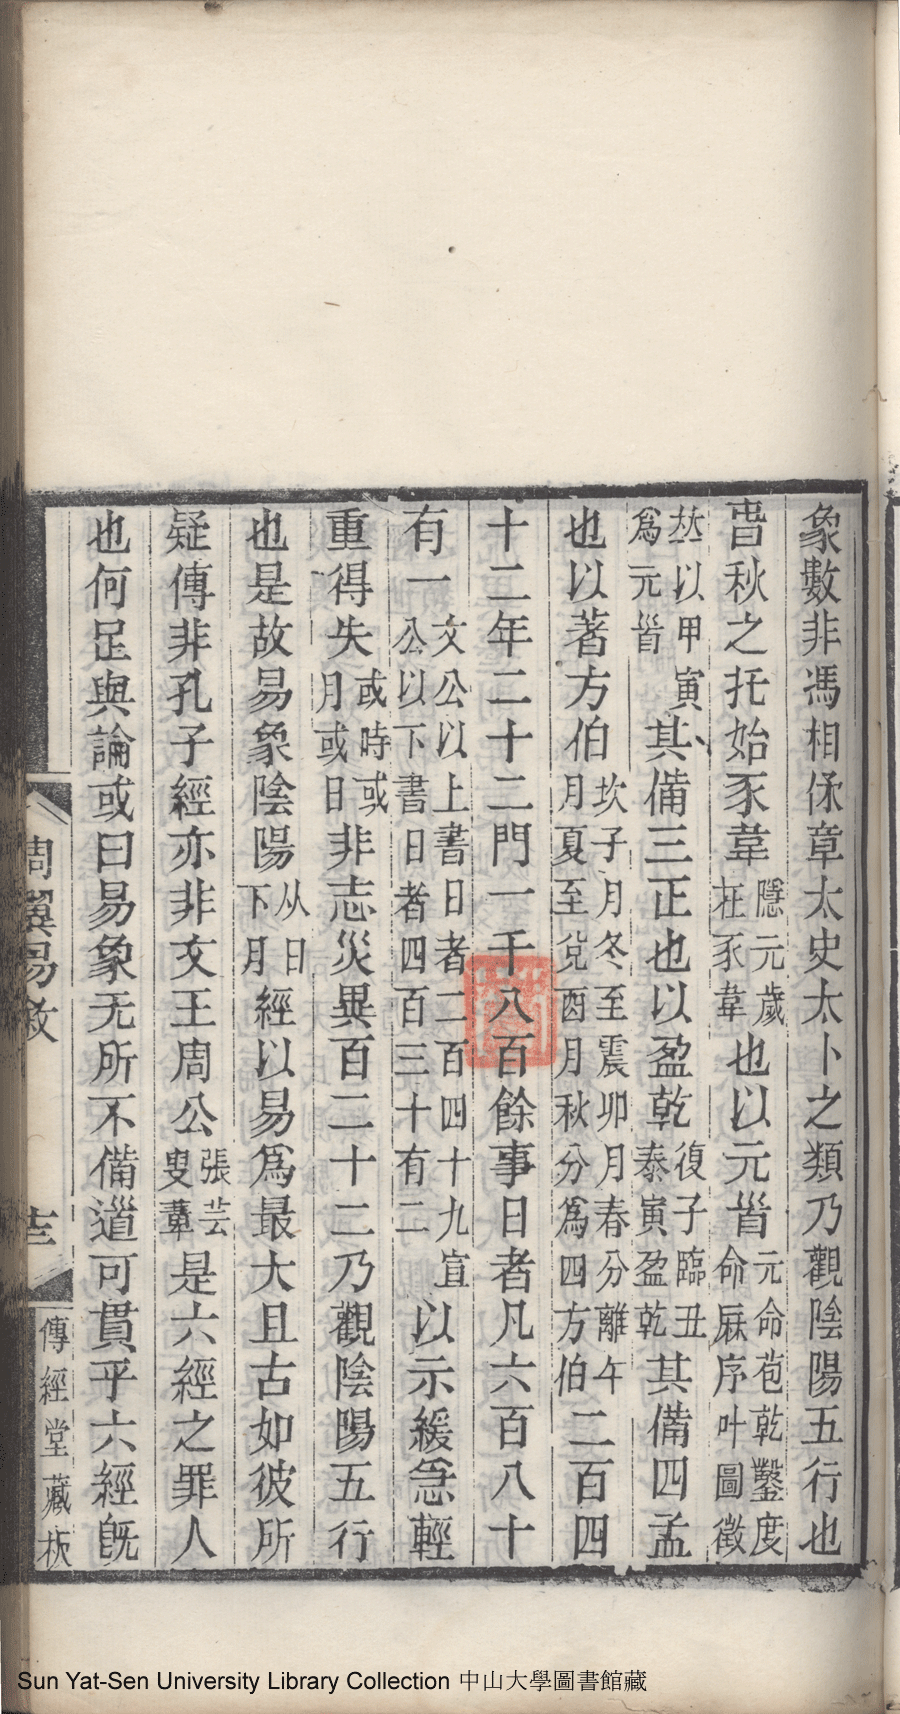 象數非馮相保章太史太卜之類乃觀陰陽五行也
旾秋之托始豕韋隱元歲在豕韋也以元首元命苞乾鑿度命厤序叶圖徵
𠫤以甲寅爲元首其備三正也以盈乾復子臨丑泰寅盈乾其備四孟
也以著方伯坎子月冬至震卯月春分離午月夏至兌酉月秋分爲四方伯二百四
十二年二十二門一千八百餘事日者凡六百八十
有一文公以上書日者二百四十九宣公以下書日者四百三十有二以示緩急輕
重得失或時或月或日非志災異百二十二乃觀陰陽五行
也是故易象陰陽从日下月經以易爲最大且古如彼所
疑傳非孔子經亦非文王周公張芸叟輩是六經之罪人
也何足與論或曰易象无所不備道可貫乎六經旣
周翼易敘
十三
傳經堂藏板
Sun Yat-Sen University Library Collection 中山大學圖書館藏